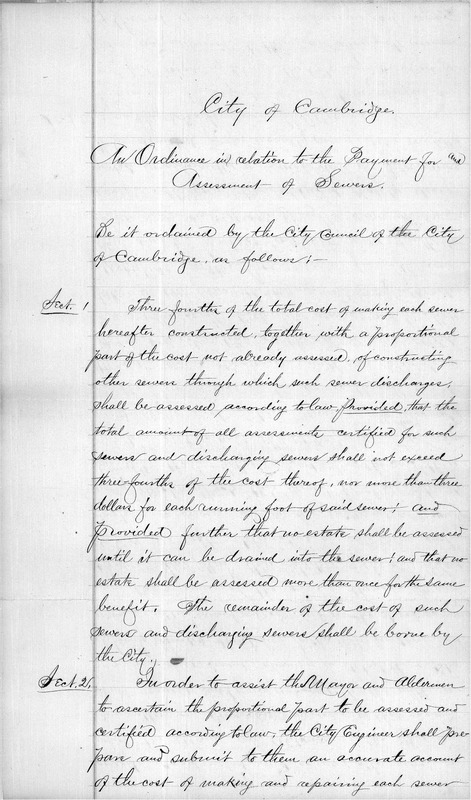 City of Cambridge.
An Ordinance in relation to the Payment for and
Assessment of Sewers.
Be it ordained by the City Council of the City
of Cambridge, as follows:—
Sect. 1 Three fourths of the total cost of making each sewer
hereafter constructed, together with a proportional
part of the cost not already assessed, of constructing
other sewers through which such sewer discharges,
shall be assessed according to law, Provided, that the
total amount of all assessments certified for such
sewers and discharging sewers shall not exceed
three fourths of the cost thereof, nor more than three
dollars for each running foot of said sewer; and
Provided further that no estate shall be assessed
until it can be drained into the sewer; and that no
estate shall be assessed more than once for the same
benefit. The remainder of the cost of such
sewers and discharging sewers shall be borne by
the City.
Sect. 2. In order to assist the Mayor and Aldermen
to ascertain the proportional part to be assessed and
certified according to law, the City Engineer shall pre-
pare and submit to them an accurate account
of the cost of making and repairing each sewer